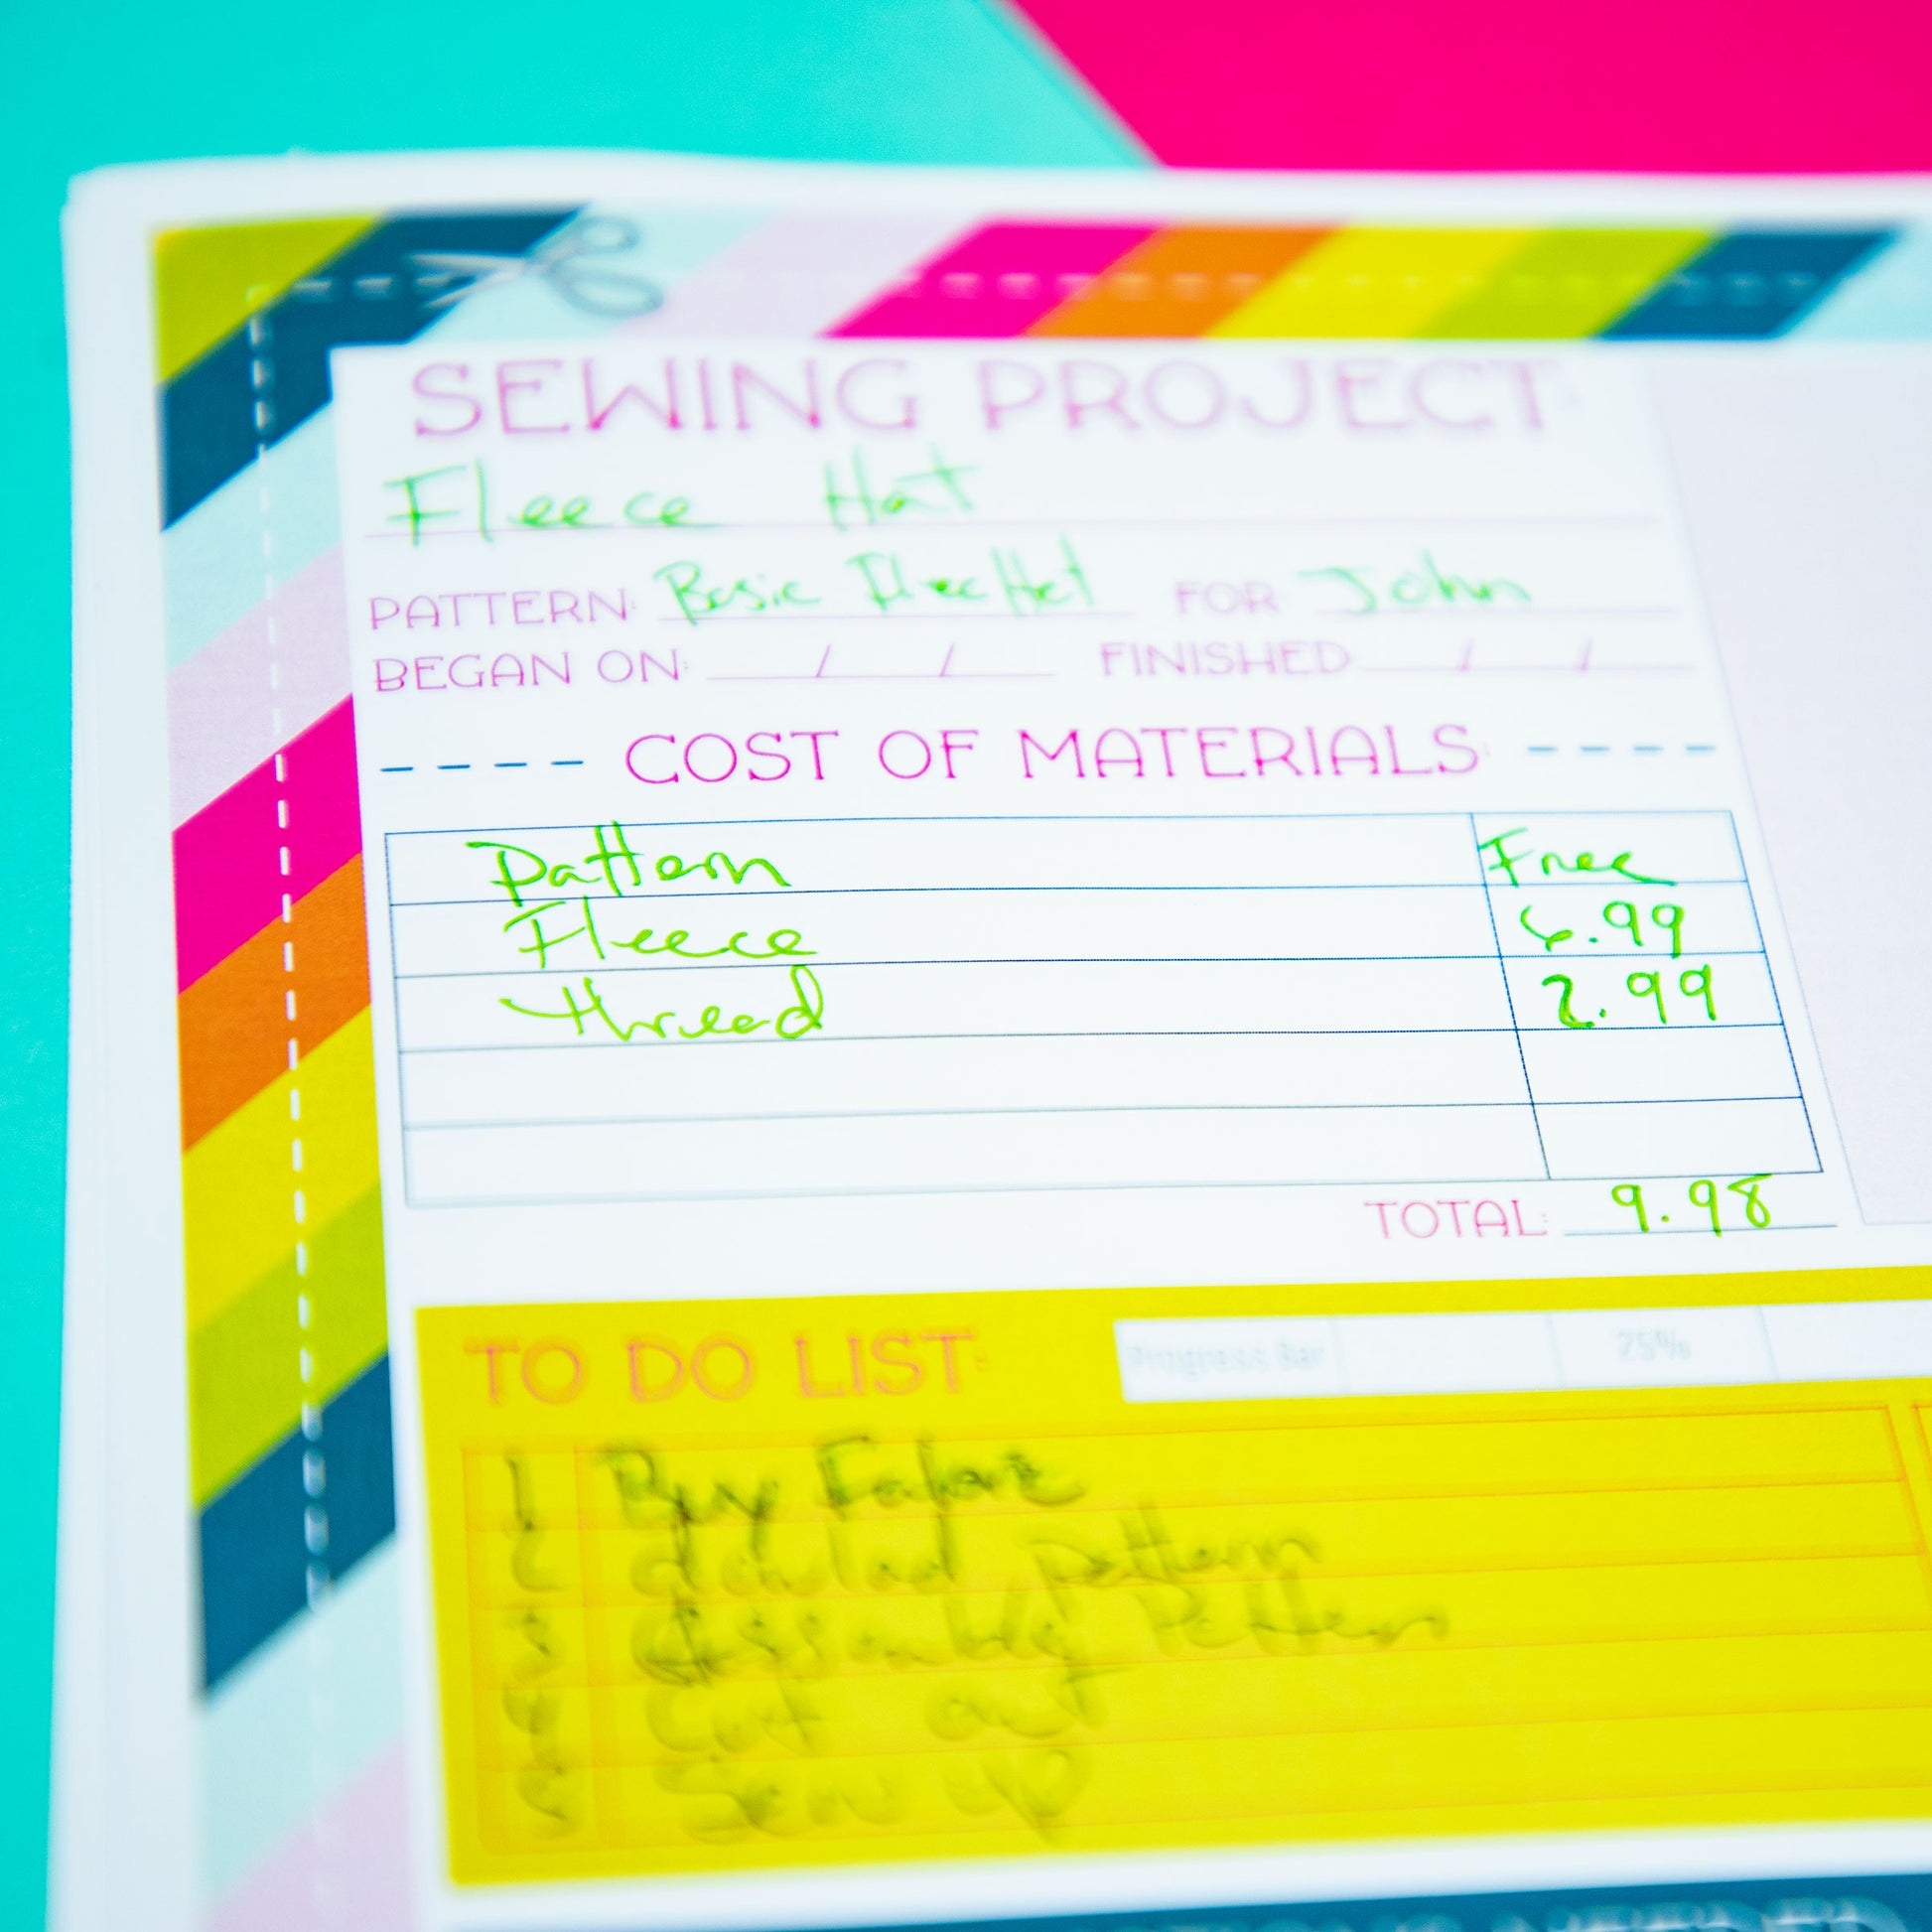 SEWING PROJECT:
Fleece Hat
PATTERN: Basic Fleece Hat FOR John
BEGAN ON: / / FINISHED / /
COST OF MATERIALS:
Pattern Free
Fleece 6.99
thread 2.99
TOTAL: 9.98
TO DO LIST: Progress Bar 25%
1 Buy Fabric
2 pattern
3 Assembly Pattern
4 Cut out
5 Sew up
NEEDED